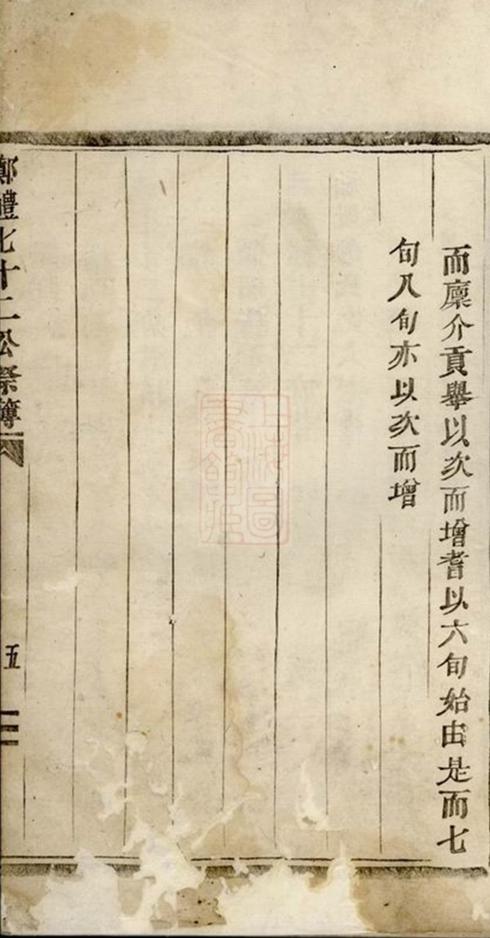 而廩介貢舉以次而增耆以六旬始由是而七
旬八旬亦以次而增
鄭禮七十二公祭簿
五